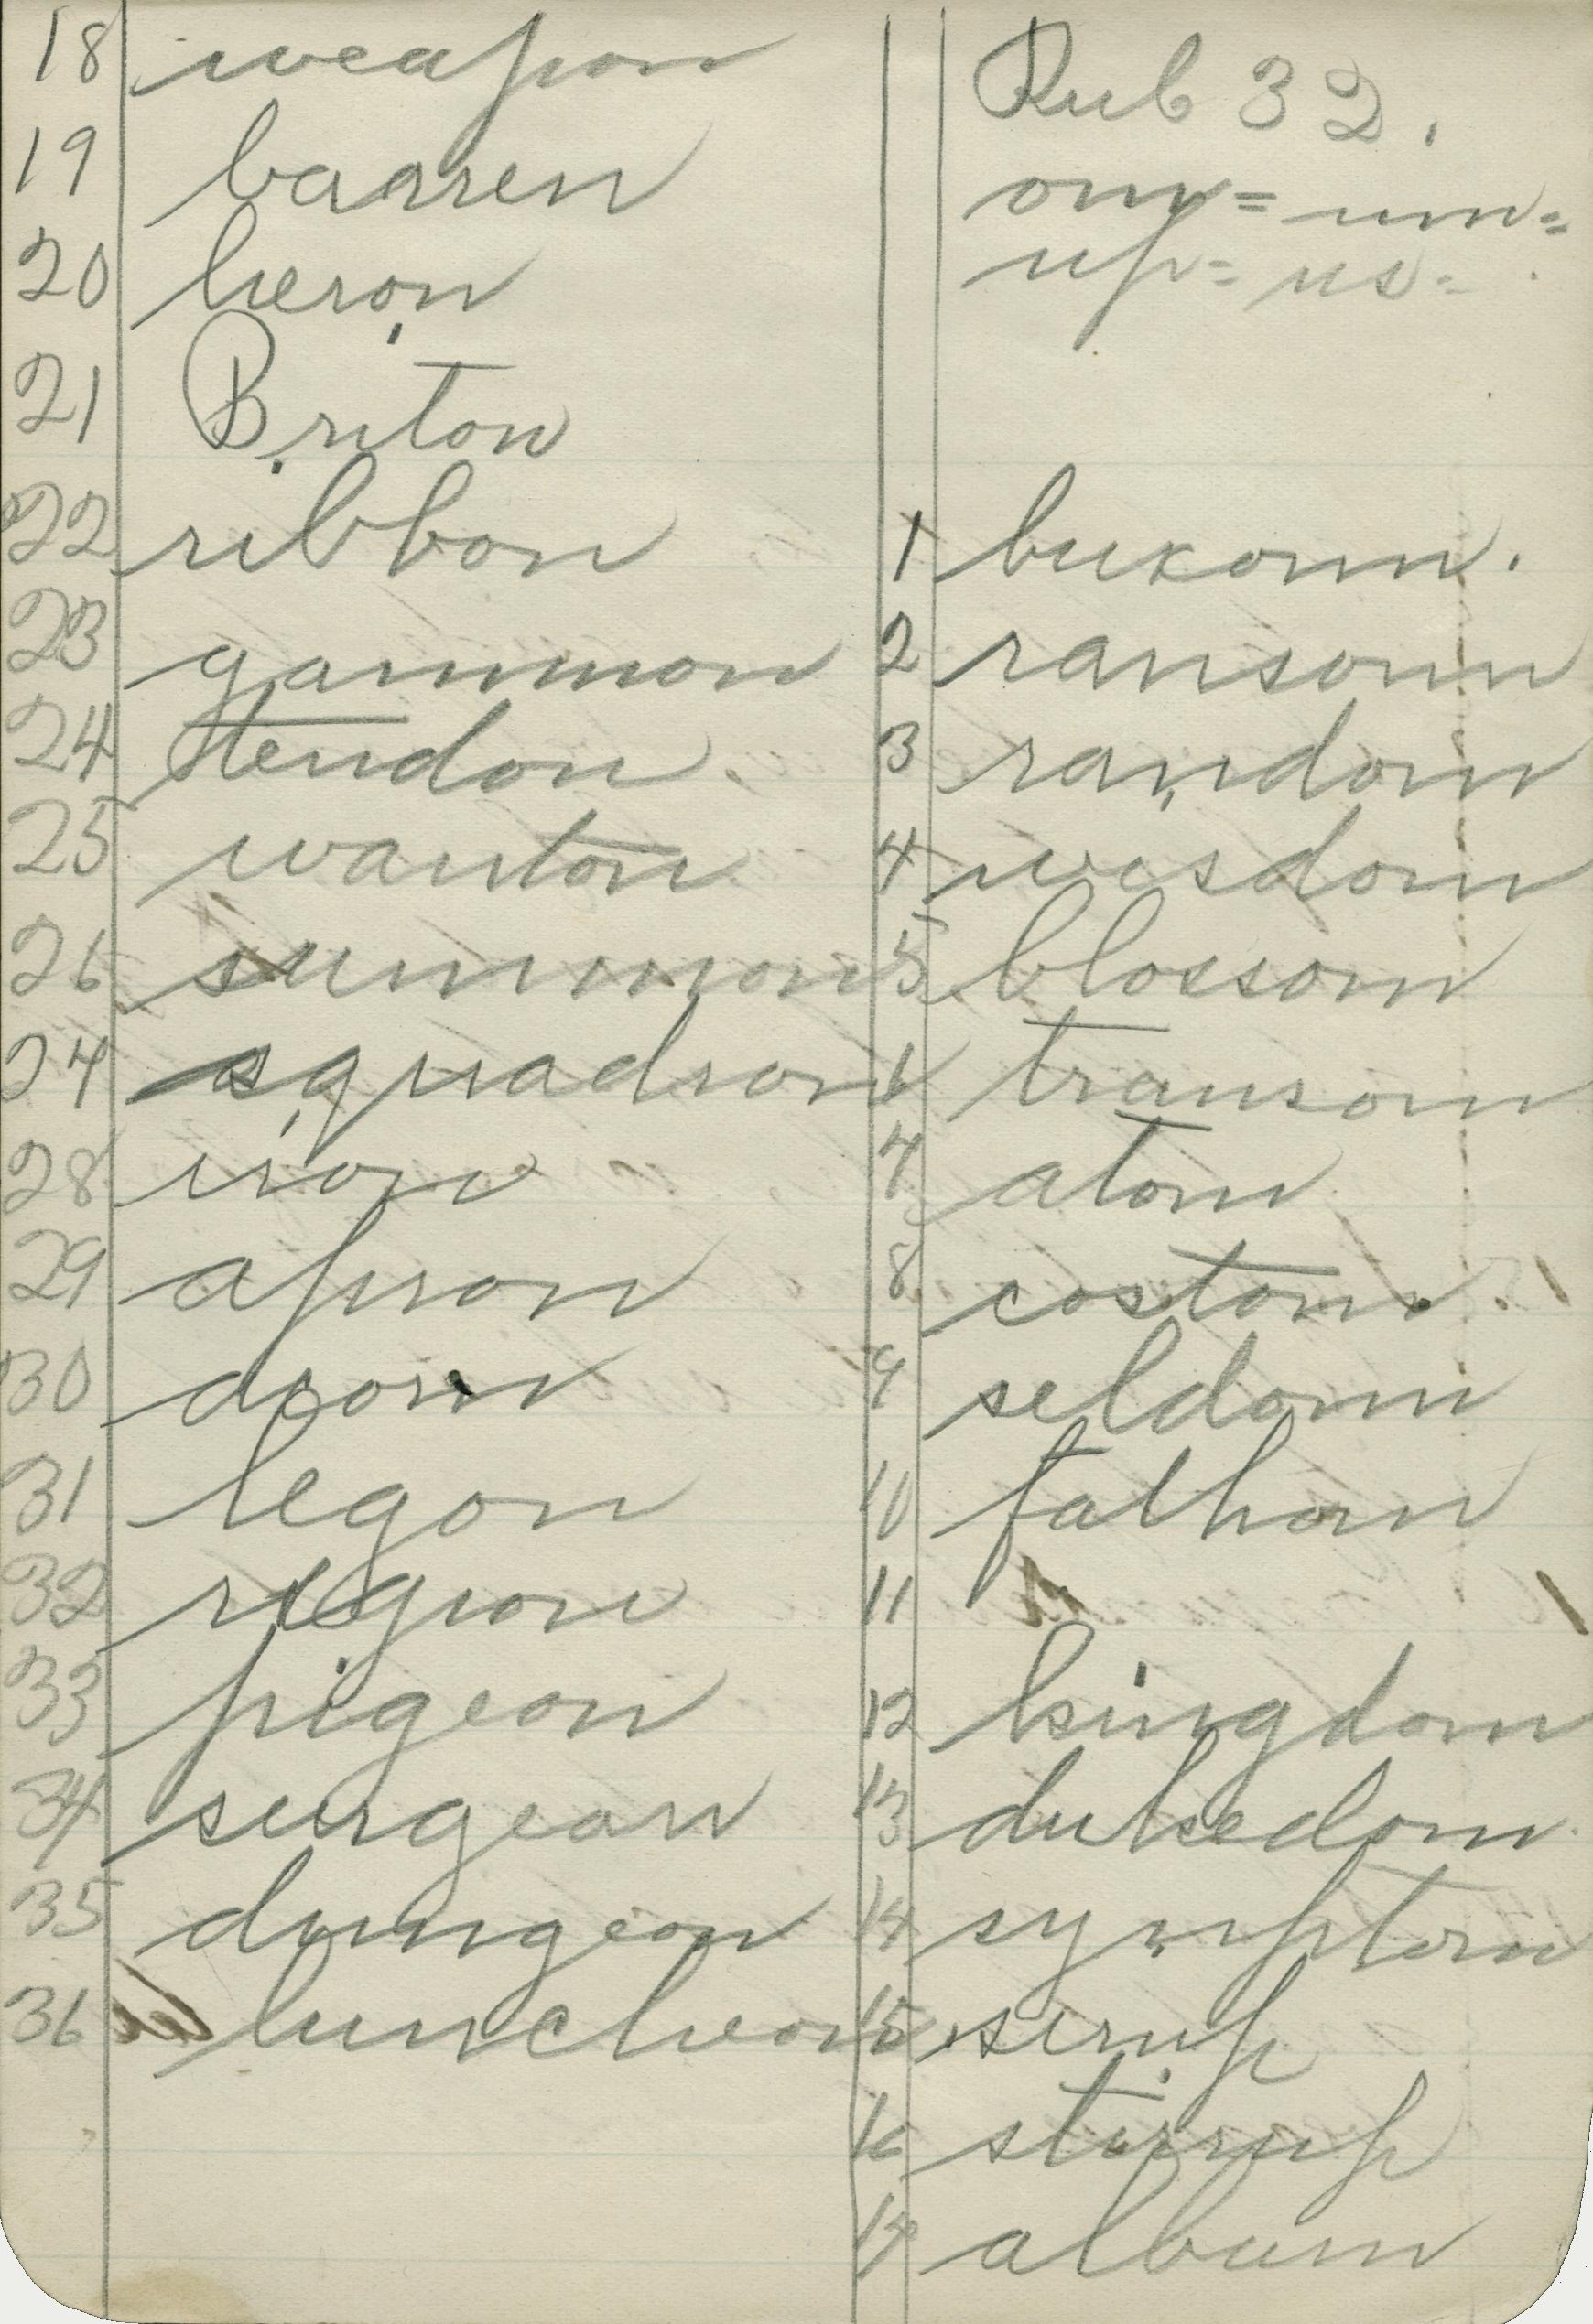 18 weapon
19 barren
20 heron
21 Briton
22 ribbon
23 gammon
24 tendon
25 wanton
26 summons
27 squadron
28 iron
29 apron
30
31 legon
32 region
33 pigeon
34 surgeon
35 dungeon
36 luncheon
Rub 32.
om= um=
up= us=
1 buxom.
2 ransom
3 random
4 wisdom
5 blossom
6 transom
7 atom
8 costom
9 seldom
10 fathom
11
12 kingdom
13 dukedom
14 symptom
15 sirup
16 stirrup
17 album